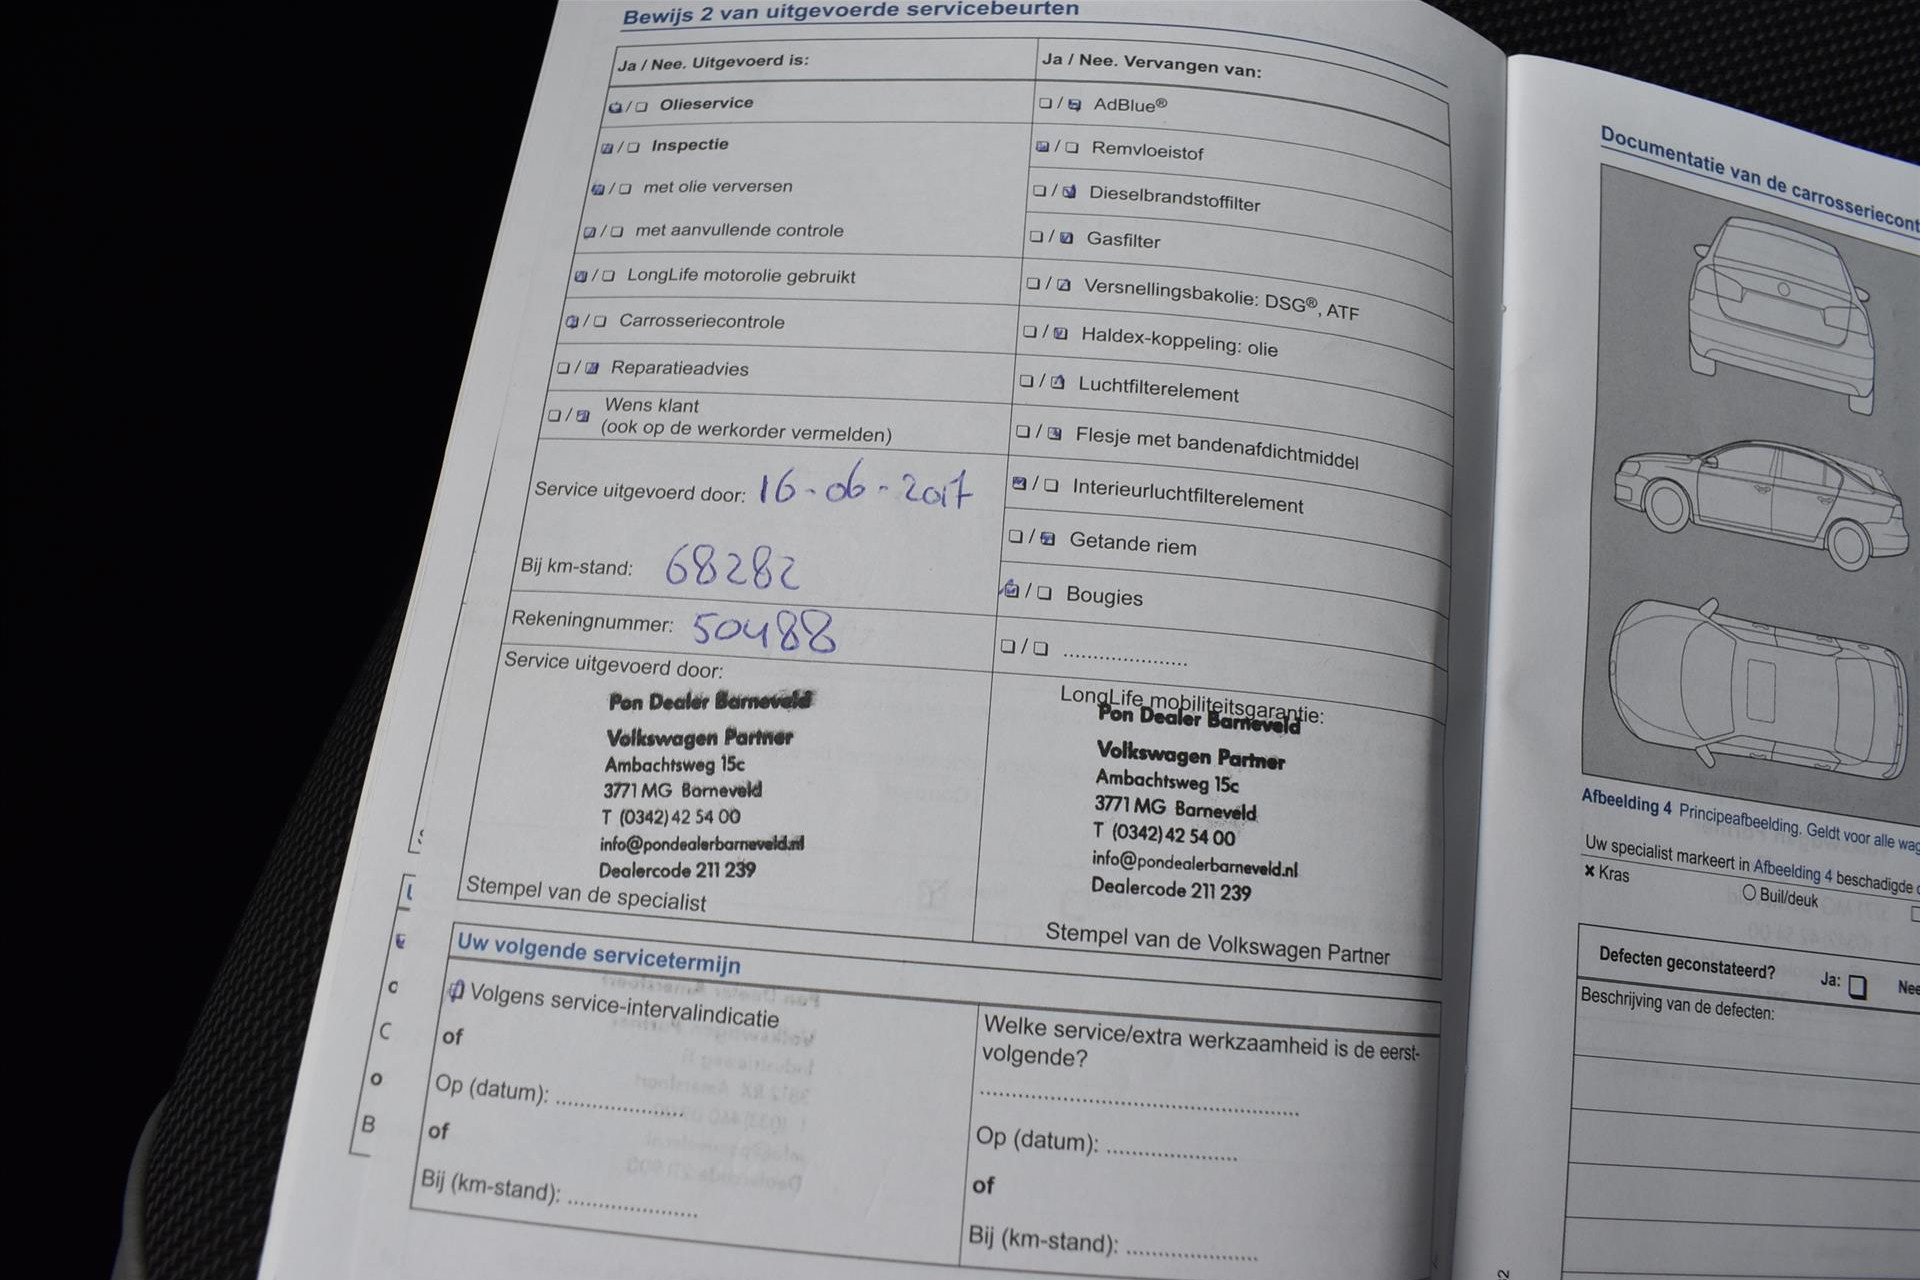 Bewijs 2 van uitgevoerde servicebeurten
Ja / Nee. Uitgevoerd is:
☑ / ☐ Olieservice
☑ / ☐ Inspectie
☑ / ☐ met olie verversen
☑ / ☐ met aanvullende controle
☑ / ☐ LongLife motorolie gebruikt
☑ / ☐ Carrosseriecontrole
☐ / ☑ Reparatieadvies
☐ / ☑ Wens klant
(ook op de werkorder vermelden)
Service uitgevoerd door: 16-06-2017
Bij km-stand: 68282
Rekeningnummer: 50488
Service uitgevoerd door:
Pon Dealer Barneveld
Volkswagen Partner
Ambachtsweg 15c
3771 MG Barneveld
T (0342) 42 54 00
info@pondealerbarneveld.nl
Dealercode 211 239
Stempel van de specialist
Ja / Nee. Vervangen van:
☐ / ☑ AdBlue®
☑ / ☐ Remvloeistof
☐ / ☑ Dieselbrandstoffilter
☐ / ☑ Gasfilter
☐ / ☑ Versnellingsbakolie: DSG®, ATF
☐ / ☑ Haldex-koppeling: olie
☐ / ☑ Luchtfilterelement
☐ / ☑ Flesje met bandenafdichtmiddel
☑ / ☐ Interieurluchtfilterelement
☐ / ☑ Getande riem
☑ / ☐ Bougies
☐ / ☐ .....................
LongLife mobiliteitsgarantie:
Pon Dealer Barneveld
Volkswagen Partner
Ambachtsweg 15c
3771 MG Barneveld
T (0342) 42 54 00
info@pondealerbarneveld.nl
Dealercode 211 239
Stempel van de Volkswagen Partner
Uw volgende servicetermijn
☑ Volgens service-intervalindicatie
of
Op (datum): .....................
of
Bij (km-stand): .....................
Welke service/extra werkzaamheid is de eerst-
volgende?
.....................................................
Op (datum): .....................
of
Bij (km-stand): .....................
Documentatie van de carrosseriecont
Afbeelding 4 Principeafbeelding. Geldt voor alle wag
Uw specialist markeert in Afbeelding 4 beschadigde
× Kras
○ Buil/deuk
Defecten geconstateerd? Ja: ☐ Nee
Beschrijving van de defecten: